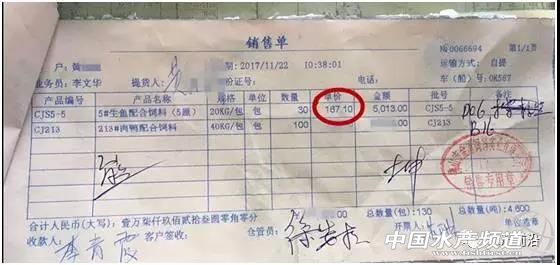 销售单
№0066694 第1/1页
户:黄 期:2017/11/22 10:38:01 运输方式:自提
业务员:李文华 提货人: 份证号: 电话: 车(船)号:0K567
产品编号 产品名称 规格 单位 数量 单价 金额 批号
CJS5-5 5#生鱼配合饲料(5溜) 20KG/包 包 30 167.10 5,013.00 CJS5-5
CJ213 213#肉鸭配合饲料 40KG/包 包 100 .00 CJ213
D06
B16
销售专用章
合计人民币(大写):壹万柒仟玖佰贰拾叁圆零角零分 .00 总数量(包):130 总数量(吨):4.600
收款人: 客户签收: 仓管员: 开票人: 单位:吉
李青霞
中国水产频道